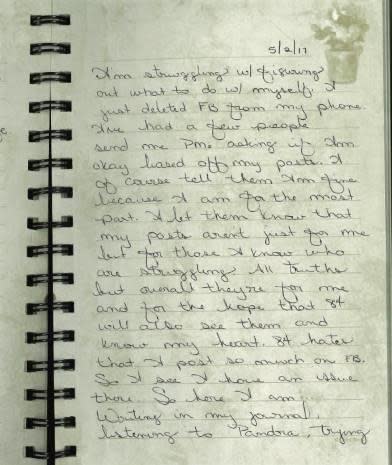 5/2/17
I'm struggling w/ figuring
out what to do w/ myself. I
just deleted FB from my phone.
I've had a few people
send me PMs asking if I'm
okay based off my posts. I
of course tell them I'm fine
because I am for the most
part. I let them know that
my posts arent just for me
but for those I know who
are struggling. All truths
but overall they're for me
and for the hope that
will also see them and
know my heart. hates
that I post so much on FB.
So I see I have an issue
there. So here I am
Writing in my journal,
listening to Pandora, trying